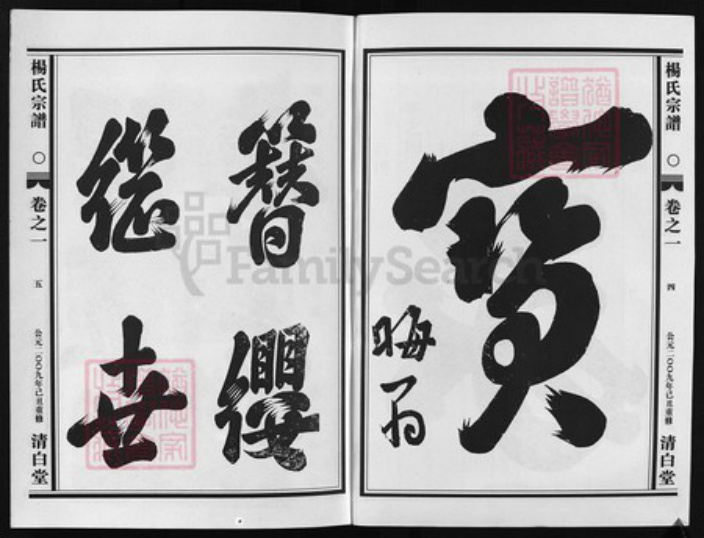 楊氏宗譜
卷之一
四
公元二〇〇九年己丑重修
清白堂
寶
晦翁
簪纓
繼世
楊氏宗譜
卷之一
五
公元二〇〇九年己丑重修
清白堂
FamilySearch